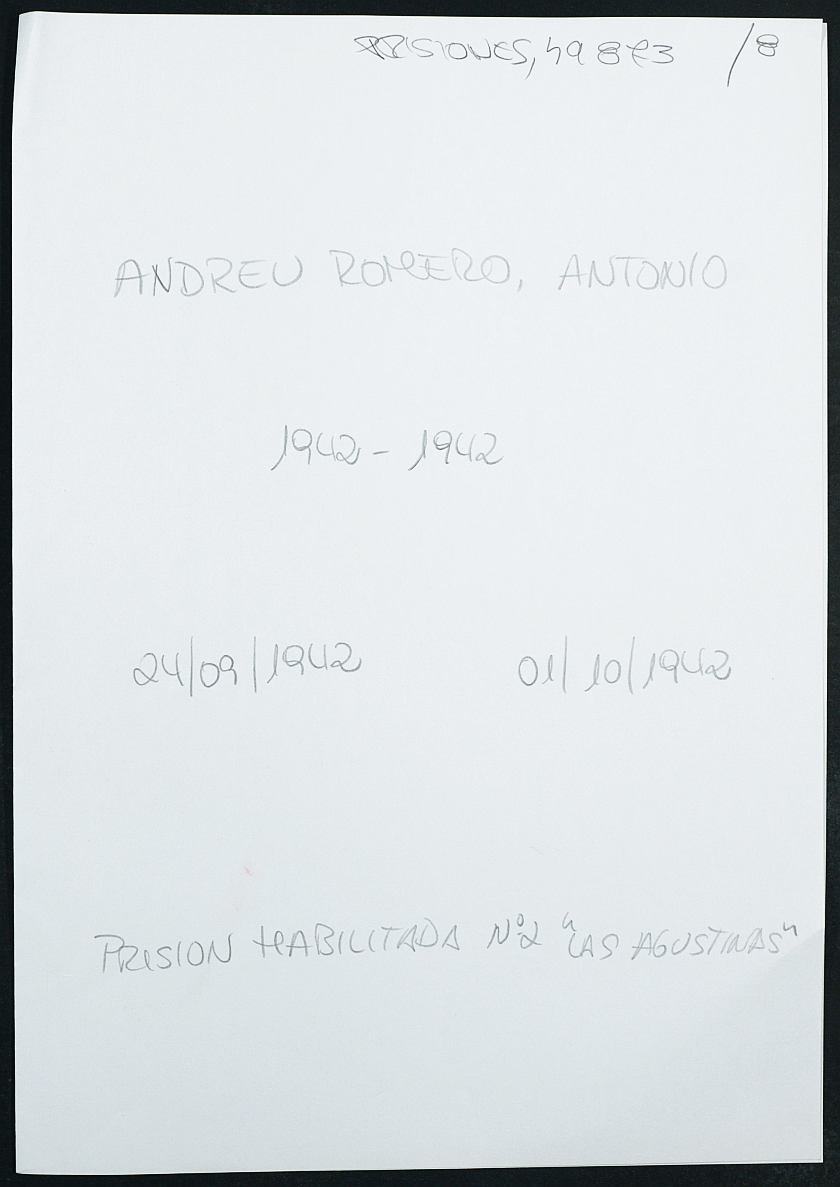 PRISIONES, 49873 /8
ANDREU ROMERO, ANTONIO
1942 - 1942
24/09/1942 01/10/1942
PRISION HABILITADA Nº2 "LAS AGUSTINAS"